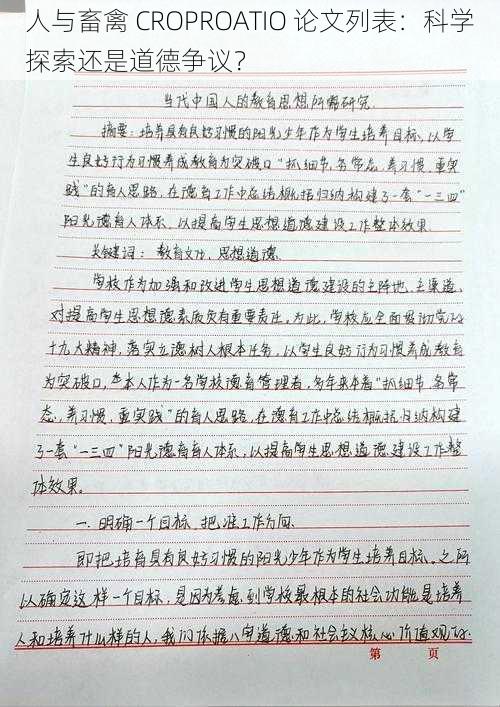 人与畜禽 CROPROATIO 论文列表：科学
探索还是道德争议？
当代中国人的教育思想所需研究
摘要：培养具有良好习惯的阳光少年作为学生培养目标，以学
生良好行为习惯养成教育为突破口"抓细节，务常态，养习惯，重实
践"的育人思路，在德育工作中总结概括归纳构建了一套"一三四"
阳光德育人体系，以提高学生思想道德建设工作整体效果。
关键词：教育文化、思想道德
学校作为加强和改进学生思想道德建设的主阵地、主渠道，
对提高学生思想德素质负有重要责任。为此，学校应全面贯彻党的
十九大精神，落实立德树人根本任务，以学生良好行为习惯养成教育
为突破口，本人作为一名学校德育管理者，多年来本着"抓细节，务常
态，养习惯，重实践"的育人思路，在德育工作中总结概括归纳构建
了一套"一三四"阳光德育育人体系，以提高学生思想道德建设工作整
体效果。
一、明确一个目标，把准工作方向
即把培育具有良好习惯的阳光少年作为学生培养目标。之所
以确定这样一个目标，是因为考虑到学校最根本的社会功能是培养
人和培养什么样的人，我们依据八字道德和社会主义核心价值观的
第 页